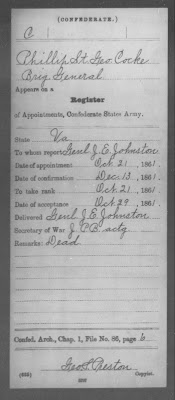 (CONFEDERATE.)
C
Phillip St. Geo Cocke
Brig General
Appears on a
Register
of Appointments, Confederate States Army.
State Va
To whom report Genl J. E. Johnston
Date of appointment Oct. 21, 1861.
Date of confirmation Dec. 13, 1861.
To take rank Oct. 21, 1861.
Date of acceptance Oct 29, 1861.
Delivered Genl J. E. Johnston
Secretary of War J. P. B. actg
Remarks: Dead.
Confed. Arch., Chap. 1, File No. 86, page 6
Geo S. Preston
Copyist.